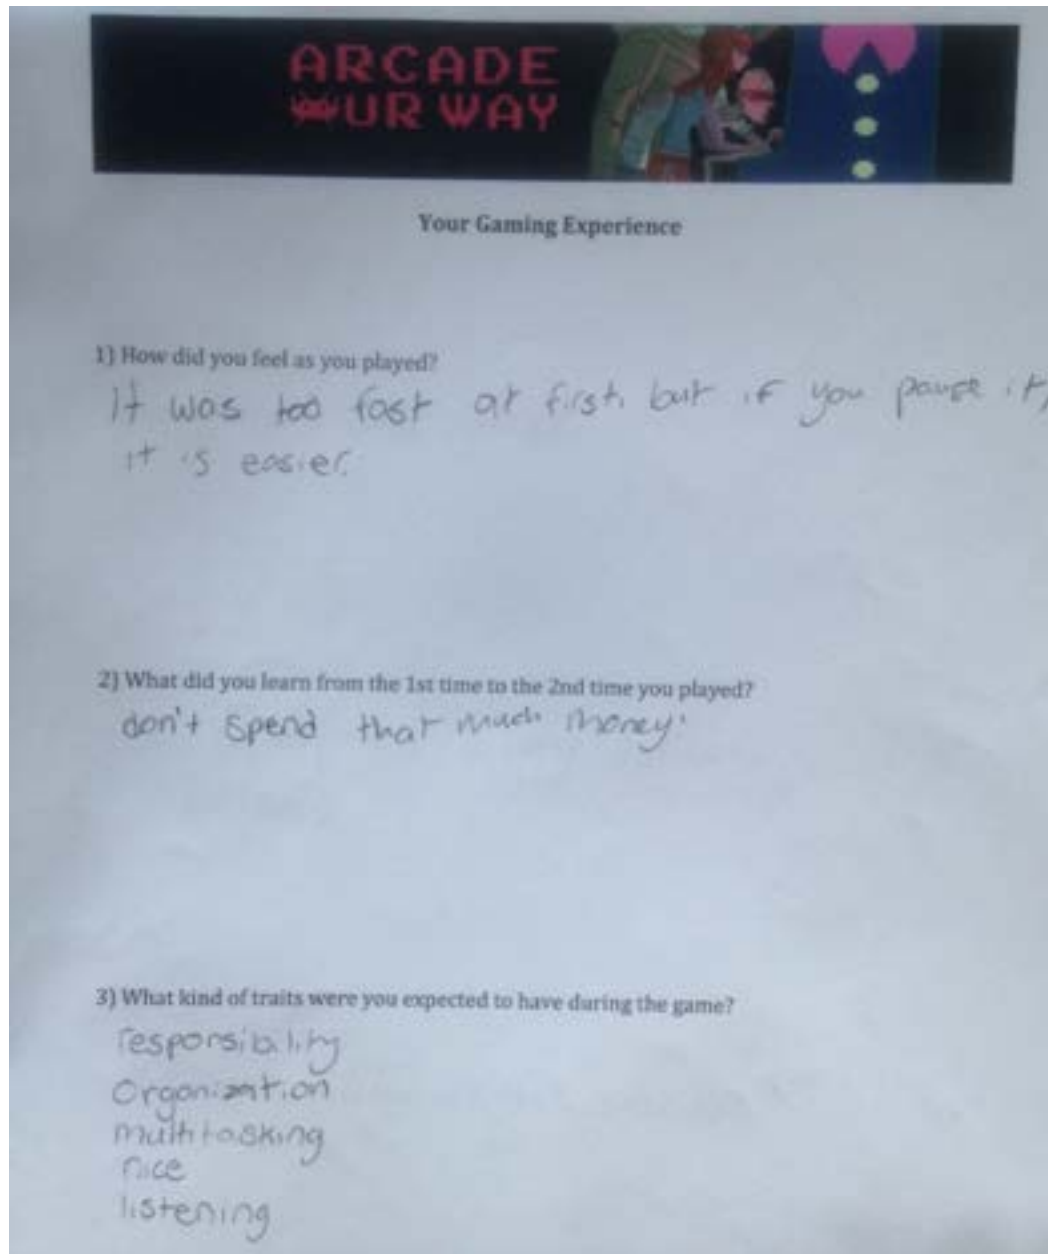 ARCADE
UR WAY
Your Gaming Experience
1) How did you feel as you played?
It was too fast at first, but if you pause it,
it is easier.
2) What did you learn from the 1st time to the 2nd time you played?
don't spend that much money.
3) What kind of traits were you expected to have during the game?
responsibility
Organization
multitasking
nice
listening